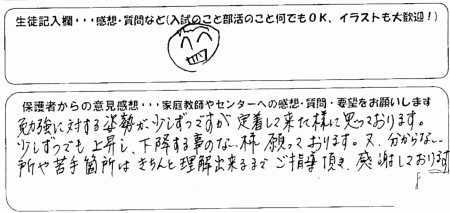 生徒記入欄・・・感想・質問など(入試のこと部活のこと何でもOK、イラストも大歓迎!)
保護者からの意見感想・・・家庭教師やセンターへの感想・質問・要望をお願いします
勉強に対する姿勢が少しずつですが定着して来た様に思っております。
少しずつでも上昇し、下降する事のない様願っております。又、分からない
所や苦手箇所はきちんと理解出来るまでご指導頂き、感謝しております